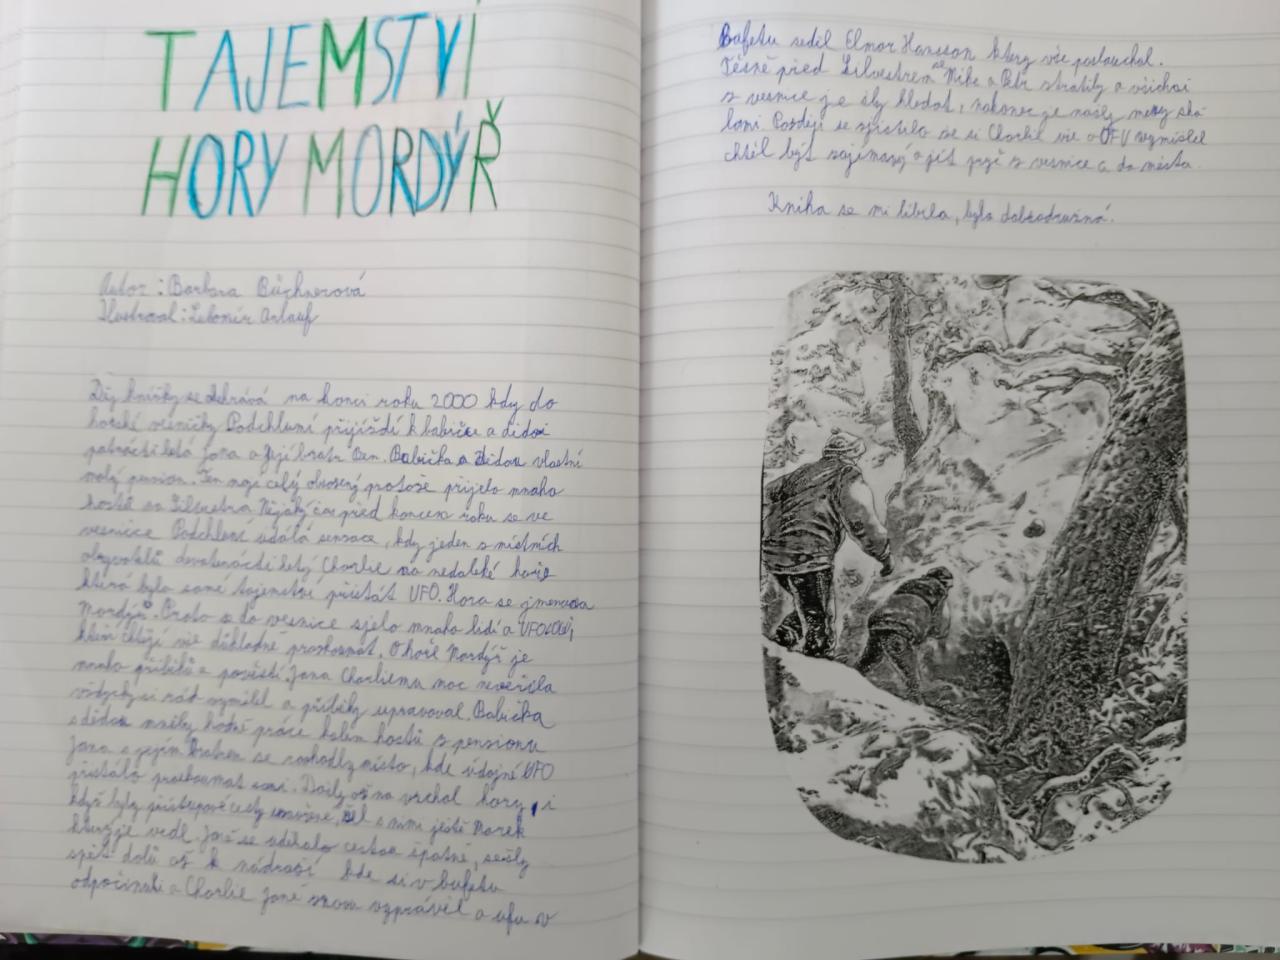 TAJEMSTVÍ
HORY MORDÝŘ
Autor: Barbara Büchnerová
Ilustroval: Lubomír Arlauf
Děj knížky se odehrává na konci roku 2000 kdy do
horské vesničky Podchlumí přijíždí k babičce a dědovi
patnáctiletá Jana a její bratr Ben. Babička a dědou vlastní
malý pension. Ten mají celý obsazený protože přijelo mnoho
hostů na Silvestra. Nějaký čas před koncem roku se ve
vesnice Podchlumí událá sensace, kdy jeden z místních
obyvatelů devatenáctiletý Charlie na nedaleké hoře
která byla samé tajemství přistát UFO. Hora se jmenova
Mordýř. Proto se do vesnice sjelo mnoho lidí a UFOLOGI,
kteří chtějí vše důkladně prozkoumat. O hoře Mordýř je
mnoho příběhů a pověstí. Jana Charliemu moc nevěřila
vždycky si rád vymýšlel a příběhy upravoval. Babička
s dědou měly hodně práce kolem hostů z pensionu
Jana s jejím bratrem se rozhodly místo, kde údajné UFO
přistálo prozkoumat sami. Došly až na vrchol hory, i
když byly přístupové cesty uzavřené, šel s nimi ještě Marek
který je vedl. Janě se udělalo cestou špatně, sešly
zpět dolů až k nádraží kde si v bufetu
odpočinuli a Charlie Janě znova vyprávěl o ufu v
Bufetu seděl Elmar Hansson který vše poslouchal.
Těsně před Silvestrem se Mike a Petr stratily a všichni
z vesnice je šly hledat, nakonec je našly mezy ská-
lami. Později se zjistilo že si Charlie vše o UFU vymyslel
chtěl být zajímavý a jít pryč z vesnice a do města.
Kniha se mi líbila, byla dobrodružná.